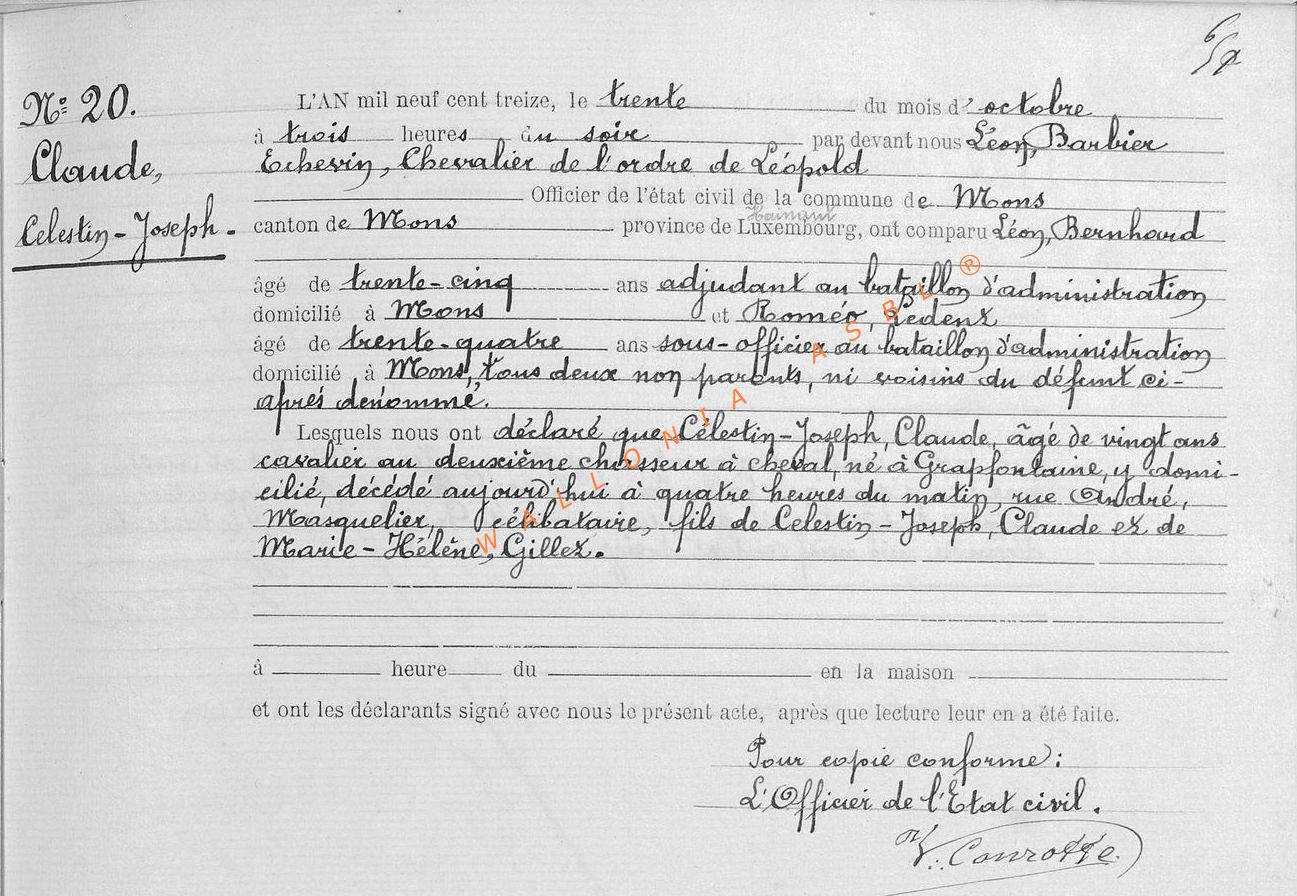 N° 20.
Claude,
Celestin-Joseph.
L'AN mil neuf cent treize, le trente du mois d' octobre
à trois heures du soir par devant nous Léon, Barbier
Echevin, Chevalier de l'ordre de Léopold
Officier de l'état civil de la commune de Mons
Hainaut
canton de Mons province de Luxembourg, ont comparu Léon, Bernhard
âgé de trente-cinq ans adjudant au bataillon d'administration
domicilié à Mons et Roméo, Ledent
âgé de trente-quatre ans sous-officier au bataillon d'administration
domicilié à Mons, tous deux non parents, ni voisins du défunt ci-
après dénommé.
Lesquels nous ont déclaré que Célestin-Joseph, Claude, âgé de vingt ans
cavalier au deuxième chasseur à cheval, né à Grapfontaine, y domi-
cilié, décédé aujourd'hui à quatre heures du matin, rue André,
Masquelier, célibataire, fils de Celestin-Joseph, Claude et de
Marie-Hélène, Gillet.
à heure du en la maison
et ont les déclarants signé avec nous le présent acte, après que lecture leur en a été faite.
Pour copie conforme:
L'Officier de l'Etat civil.
V. Conrotte.
WALLONIA ASBL ®